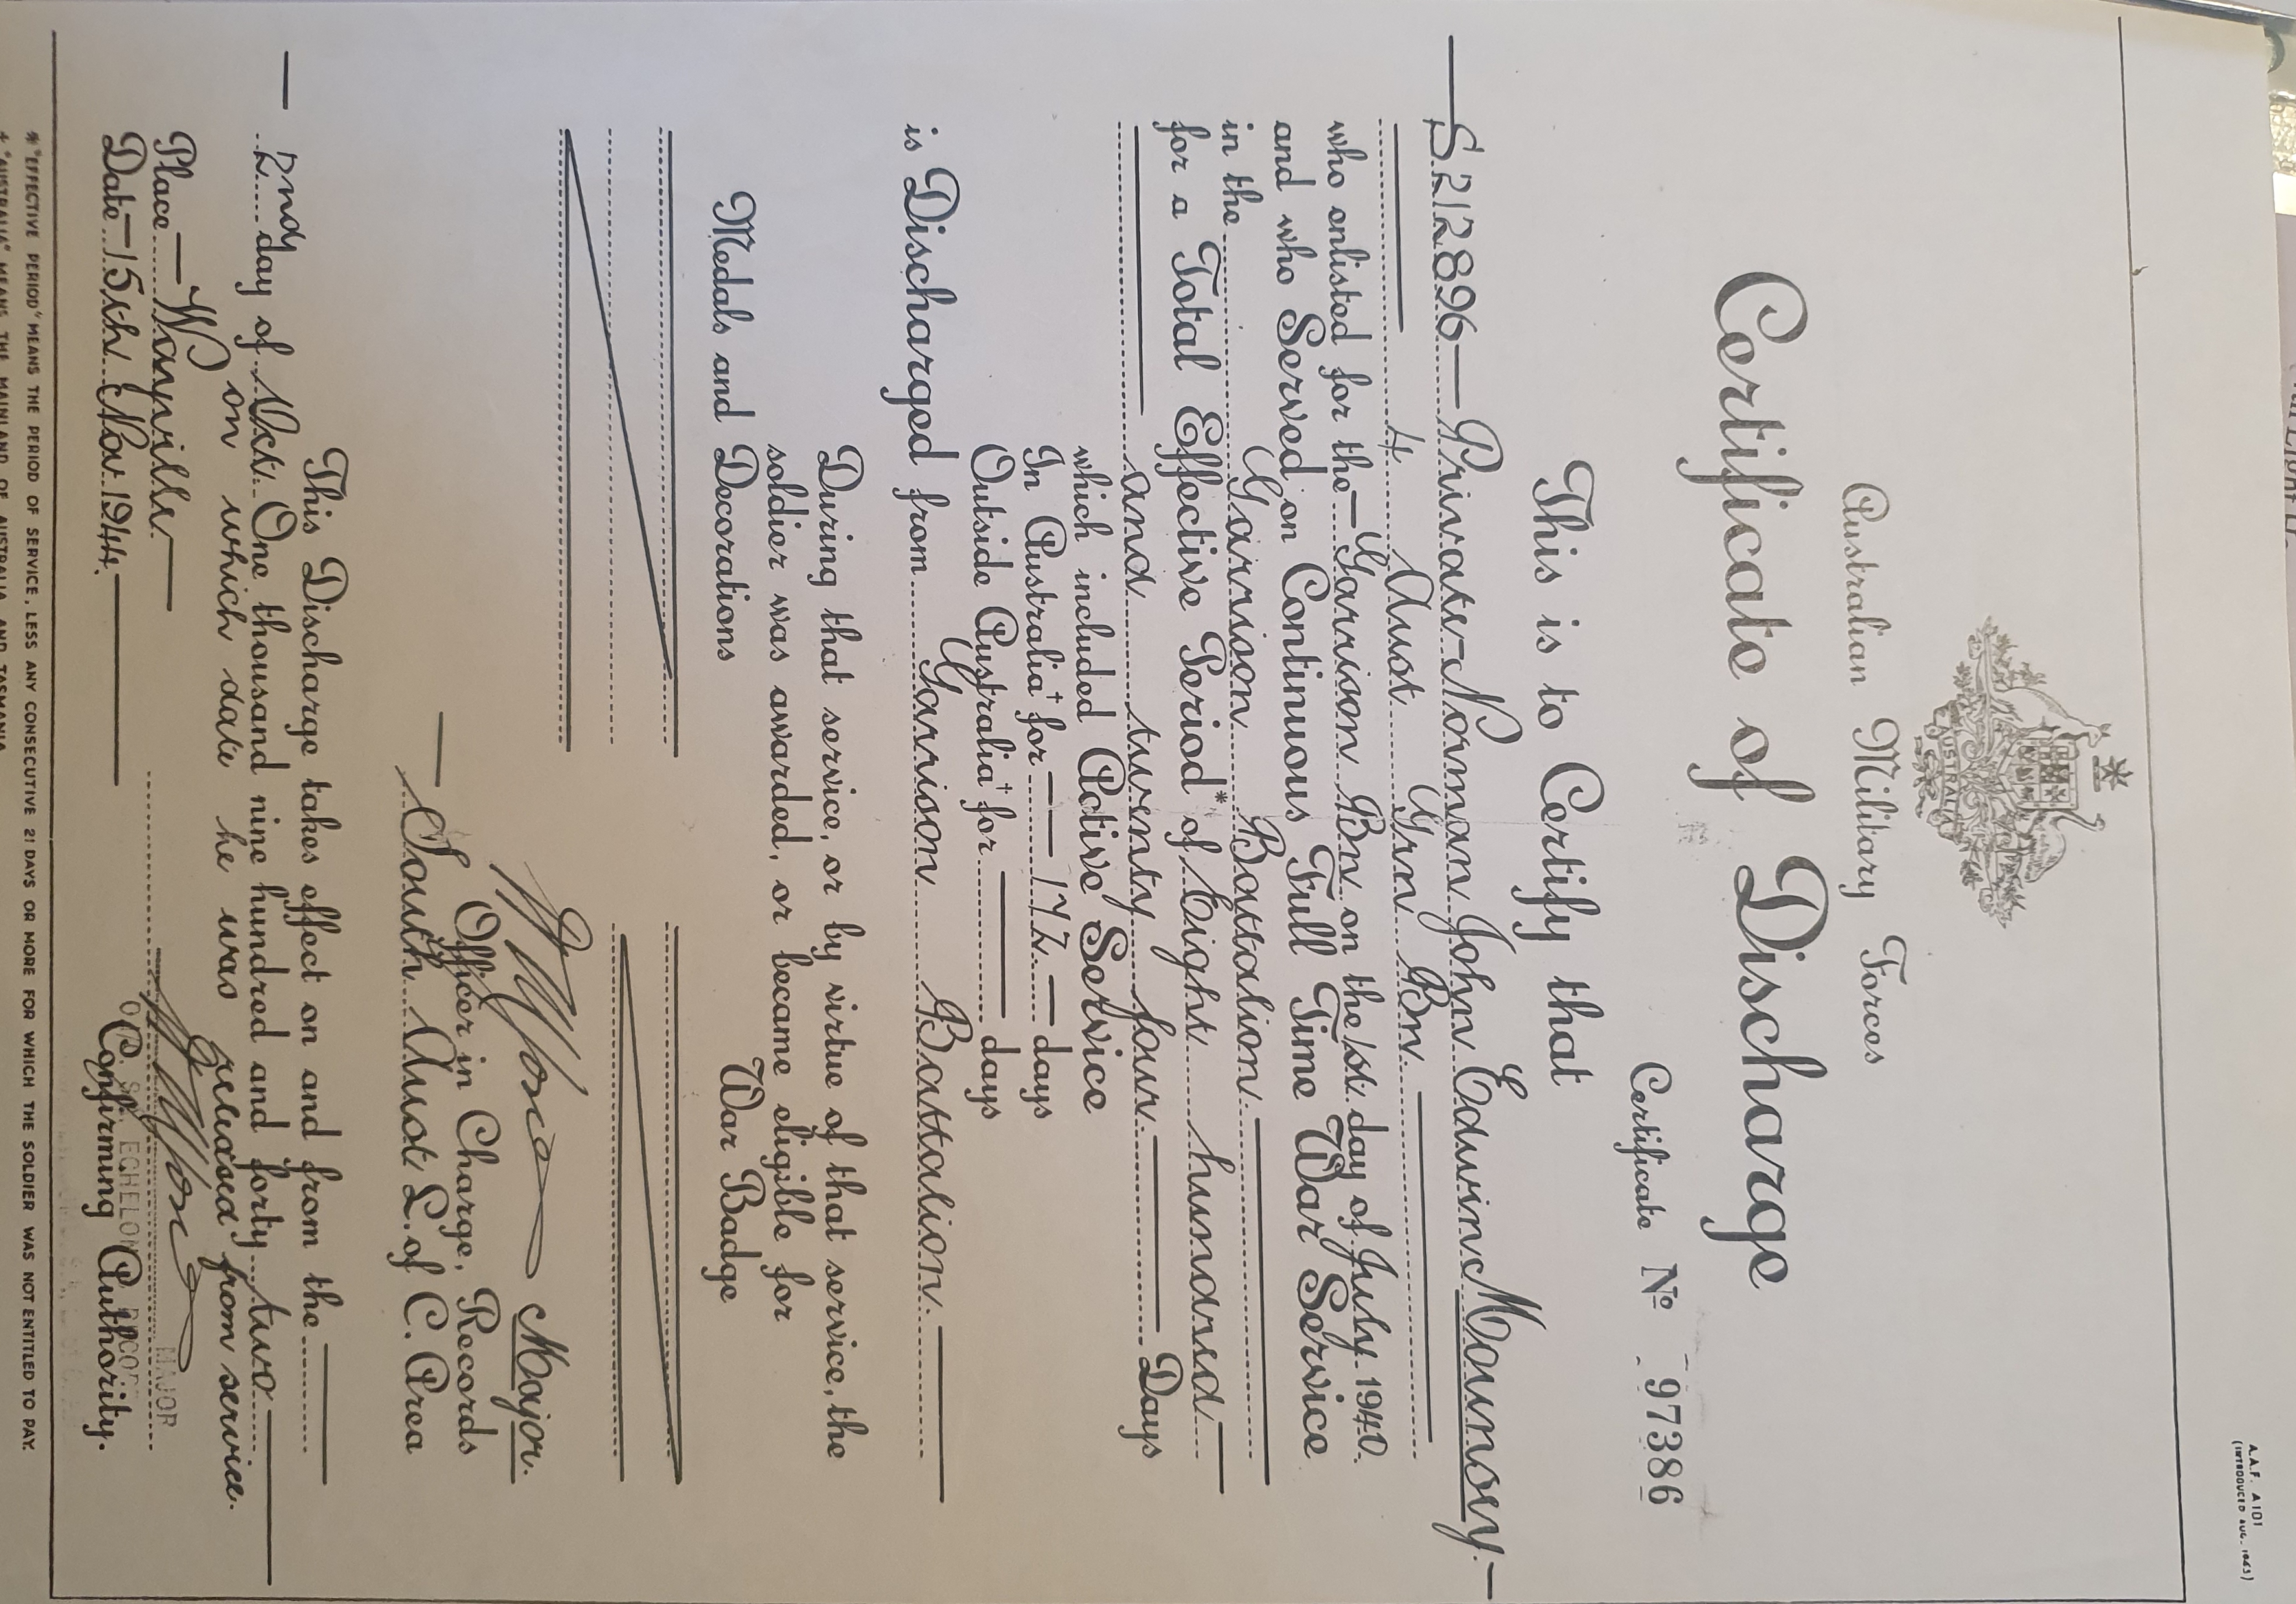 A.A.F. A101
(INTRODUCED AUG. 1943)
AUSTRALIA
Australian Military Forces
Certificate of Discharge
Certificate No 97386
This is to Certify that
S.212896 Private Norman John Edwin Mounsey
4 Aust Grn Bn.
who enlisted for the Garrison Bn on the 1st day of July 1940
and who Served on Continuous Full Time War Service
in the Garrison Battalion.
for a Total Effective Period* of Eight hundred
and twenty four Days
which included Active Service
In Australia† for 172 days
Outside Australia† for days
is Discharged from Garrison Battalion.
During that service, or by virtue of that service, the
soldier was awarded, or became eligible for
Medals and Decorations War Badge
Major.
Officer in Charge, Records
South Aust L. of C. Area
This Discharge takes effect on and from the
2nd day of Oct. One thousand nine hundred and forty two
on which date he was released from service.
Place Wayville
MAJOR
Date 15th Nov 1944.
Confirming Authority.
ECHELON
* "EFFECTIVE PERIOD" MEANS THE PERIOD OF SERVICE, LESS ANY CONSECUTIVE 21 DAYS OR MORE FOR WHICH THE SOLDIER WAS NOT ENTITLED TO PAY.
† "AUSTRALIA" MEANS THE MAINLAND OF AUSTRALIA AND TASMANIA